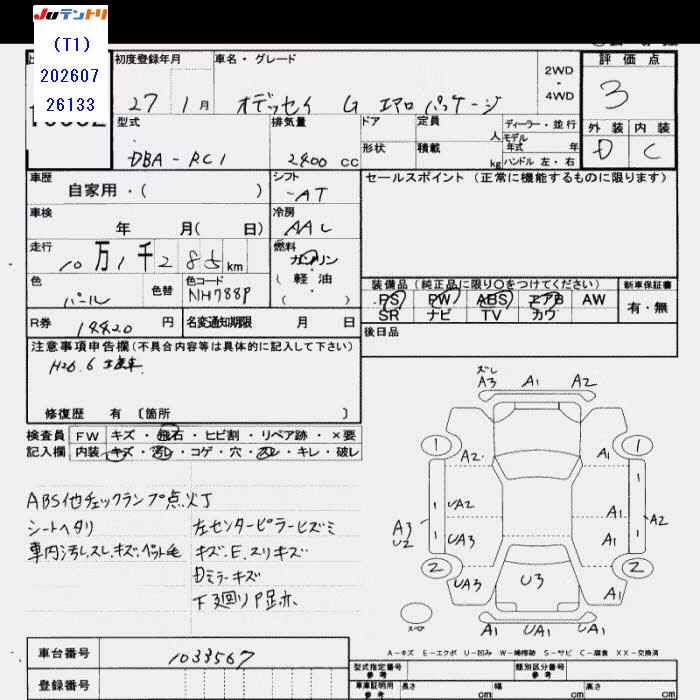 Juテントリ
(T1)
202607
26133
初度登録年月
車名・グレード
評価点
27 1月
オデッセイ G エアロパッケージ
2WD
-
4WD
3
型式
排気量
ドア
定員
人
ディーラー・並行
モデル
年式 年
外装 内装
DBA-RC1
2400 cc
形状
積載
kg
ハンドル 左・右
D C
車歴
自家用・( )
シフト
-AT
セールスポイント (正常に機能するものに限ります)
車検
年 月( 日)
冷房
AAC
走行
10万1千285km
燃料
ガソリン
(軽油)
色
パール
色替
色コード
NH788P
装備品 (純正品に限り○をつけてください)
新車保証書
PS PW ABS エアB AW
SR ナビ TV カワ
有・無
R券
14420円
名変通知期限 月 日
後日品
注意事項申告欄(不具合内容等は具体的に記入して下さい)
H26.6
修復歴 有 〔箇所 〕
検査員
記入欄
FW キズ・飛石・ヒビ割・リペア跡・×要
内装 キズ・汚レ・コゲ・穴・スレ・キレ・破レ
ABS他チェックランプ点灯
シートヘタリ
左センターピラーヒズミ
車内汚レ.スレ.キズ.ペット毛
キズ.E.スリキズ
Dミラーキズ
ズレ
A3 A1 A2
1 1
A2 A1
UA2 A1
A3
U2
UA3 A1
A2
2 2
UA3 U3 A1
スペア
A1 UA1 A1
A-キズ E-エクボ U-凹み W-補修跡 S-サビ C-腐食 XX-交換済
車台番号
1033567
登録番号
型式指定番号
参考
類別区分番号
参考
車庫証明用
参考
長さ cm
幅 cm
高さ cm